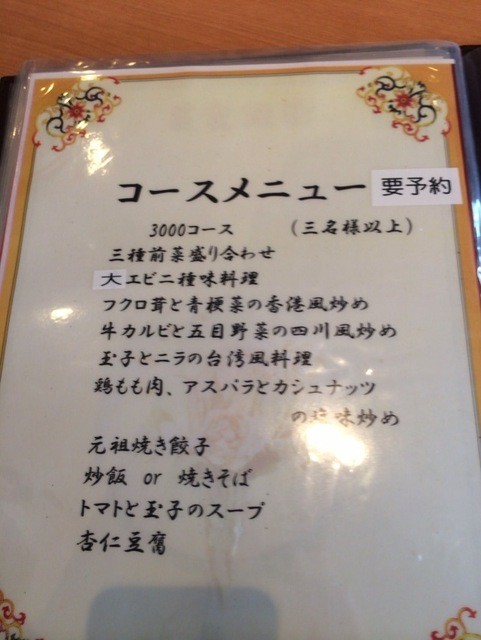 コースメニュー 要予約
3000コース (三名様以上)
三種前菜盛り合わせ
大エビ二種味料理
フクロ茸と青梗菜の香港風炒め
牛カルビと五目野菜の四川風炒め
玉子とニラの台湾風料理
鶏もも肉、アスパラとカシュナッツ
の塩味炒め
元祖焼き餃子
炒飯 or 焼きそば
トマトと玉子のスープ
杏仁豆腐